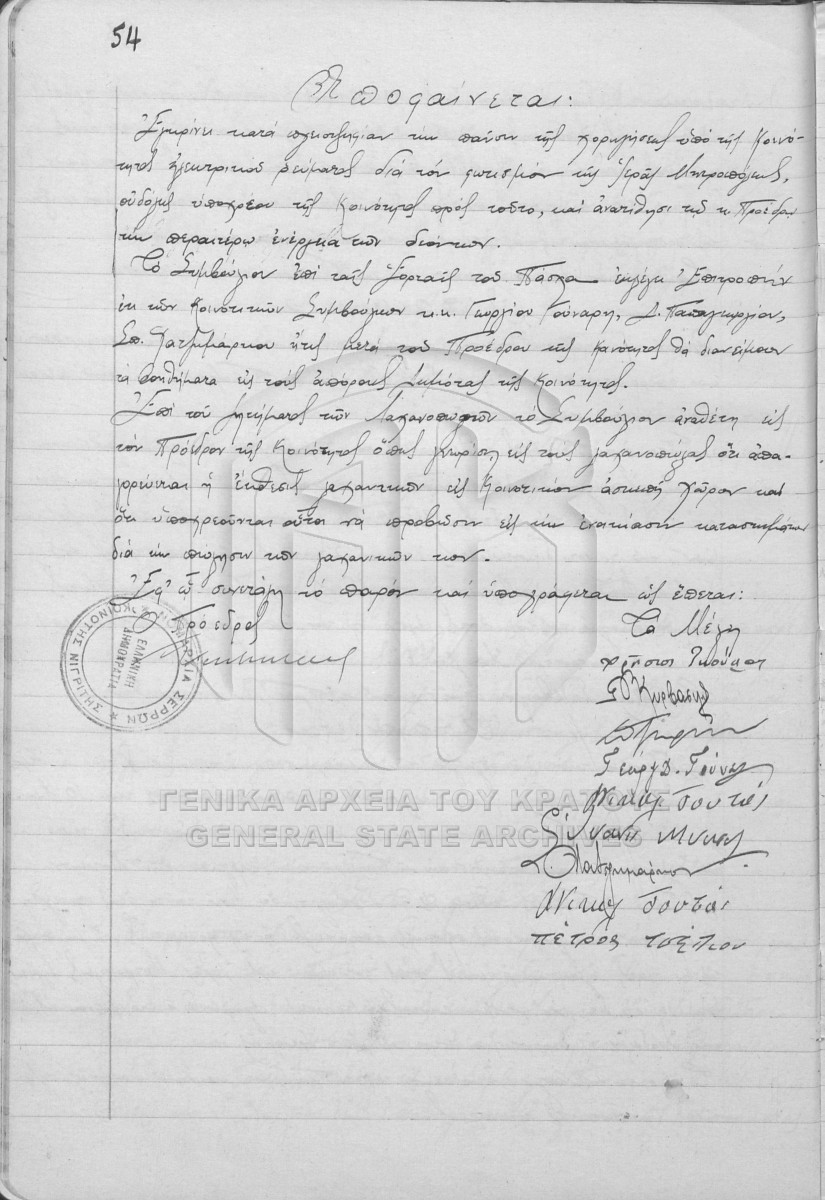 54
Ἀποφαίνεται:
Ἐγκρίνει κατά πλειοψηφίαν τήν παῦσιν τῆς χορηγήσεως ὑπό τῆς Κοινό-
τητος ἠλεκτρικοῦ ρεύματος διά τόν φωτισμόν τῆς Ἱερᾶς Μητροπόλεως,
οὐδόλως ὑποχρέου τῆς Κοινότητος πρός τοῦτο, καί ἀνατίθησι τῷ κ. Προέδρῳ
τήν περαιτέρω ἐνέργεια τῶν δεόντων.
Τό Συμβούλιον ἐπί ταῖς Ἑορταῖς τοῦ Πάσχα ἐκλέγει Ἐπιτροπήν
ἐκ τῶν Κοινοτικῶν Συμβούλων κ.κ. Γεωργίου Γούναρη, Δ. Παπαγεωργίου,
Σπ. Χατζημάρκου ἥτις μετά τοῦ Προέδρου τῆς Κοινότητος θά διανείμουν
τά βοηθήματα εἰς τούς ἀπόρους Δημότας τῆς Κοινότητος.
Ἐπί τοῦ ζητήματος τῶν Λαχανοπωλῶν τό Συμβούλιον ἀναθέτη εἰς
τόν Πρόεδρον τῆς Κοινότητος ὅπως γνωρίσῃ εἰς τούς λαχανοπώλας ὅτι ἀπα-
γορεύεται ἡ ἔκθεσις λαχανικῶν εἰς Κοινοτικόν ἀσκεπῆ χῶρον καί
ὅτι ὑποχρεοῦνται οὗτοι νά προβῶσιν εἰς τήν ἐνοικίασιν καταστημάτων
διά τήν πώλησιν τῶν λαχανικῶν των.
Ἐφ' ᾧ συνετάγη τό παρόν καί ὑπογράφεται ὡς ἕπεται:
Ὁ Πρόεδρος
Τά Μέλη
ΝΟΜΑΡΧΙΑ ΣΕΡΡΩΝ * ΚΟΙΝΟΤΗΣ ΝΙΓΡΙΤΗΣ *
ΕΛΛΗΝΙΚΗ
ΔΗΜΟΚΡΑΤΙΑ
Γεώργ. Δ. Γούναρ
ΓΕΝΙΚΑ ΑΡΧΕΙΑ ΤΟΥ ΚΡΑΤΟΥΣ
GENERAL STATE ARCHIVES
Πέτρος